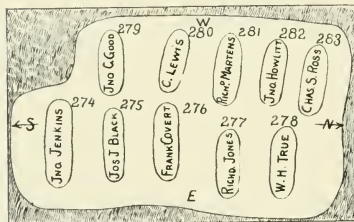 W
279
JNO C. GOOD
280
C. LEWIS
281
RICHD. MARTENS
282
JNO HOWLITT
283
CHAS. S. ROSS
S
N
274
JNO JENKINS
275
JOS J BLACK
276
FRANK COVERT
277
RICHD. JONES
278
W. H. TRUE
E